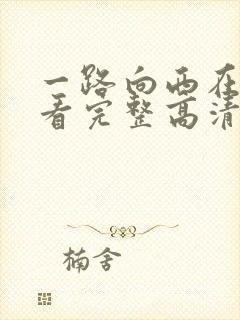 一路向西在
看完整高清
楠舍